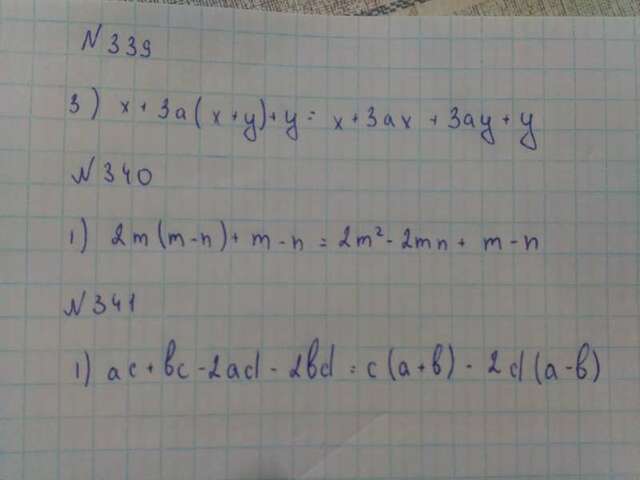 N 339
3) x + 3a(x + y) + y = x + 3ax + 3ay + y
N 340
1) 2m(m - n) + m - n = 2m² - 2mn + m - n
N 341
1) ac + bc - 2ad - 2bd = c(a + b) - 2d(a - b)